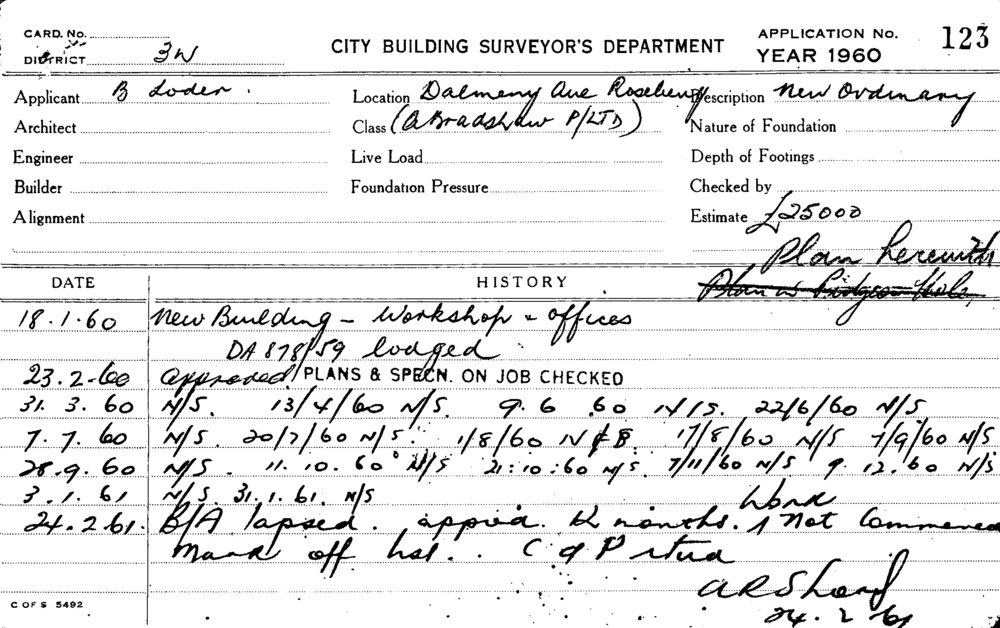 CARD. No.
DISTRICT 3W
CITY BUILDING SURVEYOR'S DEPARTMENT
APPLICATION No. 123
YEAR 1960
Applicant B Loder. Location Dalmeny Ave Rosebery Description New Ordinary
Architect Class (A Bradshaw P/LTD) Nature of Foundation
Engineer Live Load Depth of Footings
Builder Foundation Pressure Checked by
Alignment Estimate £25000
Plan herewith
Plan in Pidgeon Hole
DATE HISTORY
18.1.60 New Building - Workshop & offices
DA 878/59 lodged
23.2-60 approved / PLANS & SPECN. ON JOB CHECKED
31.3.60 N/S. 13/4/60 N/S. 9.6.60 N/S. 22/6/60 N/S
7.7.60 N/S. 20/7/60 N/S. 1/8/60 17/8/60 N/S 7/9/60 N/S
28.9.60 N/S. 11.10.60 N/S 21:10:60 N/S. 7/11/60 N/S 9.12.60 N/S
3.1.61 N/S. 31.1.61. N/S Work
24.2.61. B/A lapsed. 12 months. Not Commenced
Mark off C of P
24.2.61
C OF S 5492